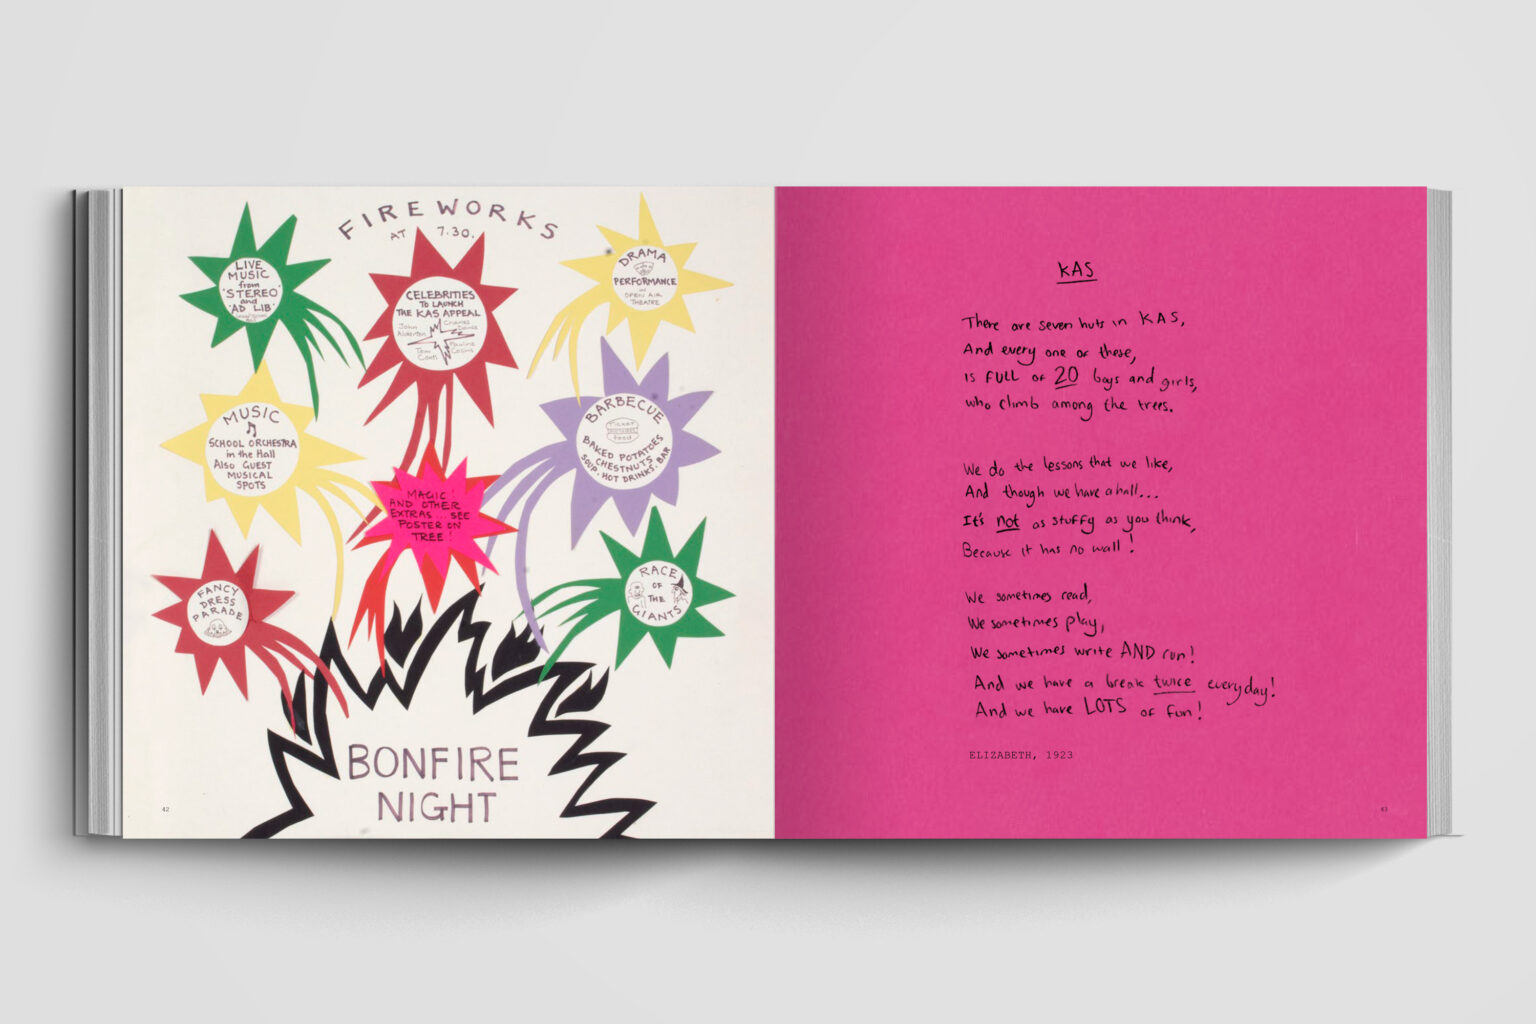 FIREWORKS
AT 7.30.
LIVE
MUSIC
from
'STEREO'
and
'AD LIB'
CELEBRITIES
TO LAUNCH
THE KAS APPEAL
John
Alderton
Charles
Dance
Tom
Conti
Pauline
Collins
DRAMA
PERFORMANCE
in
OPEN AIR
THEATRE
MUSIC
SCHOOL ORCHESTRA
in the Hall
Also GUEST
MUSICAL
SPOTS
BARBECUE
Ticket
food
BAKED POTATOES
CHESTNUTS
SOUP. HOT DRINKS. BAR
MAGIC!
AND OTHER
EXTRAS... SEE
POSTER ON
TREE!
FANCY
DRESS
PARADE
RACE
OF
THE
GIANTS
BONFIRE
NIGHT
42
KAS
There are seven huts in KAS,
And every one of these,
is FULL of 20 boys and girls,
who climb among the trees.
We do the lessons that we like,
And though we have a hall...
It's not as stuffy as you think,
Because it has no wall!
We sometimes read,
We sometimes play,
We sometimes write AND run!
And we have a break twice everyday!
And we have LOTS of fun!
ELIZABETH, 1923
43